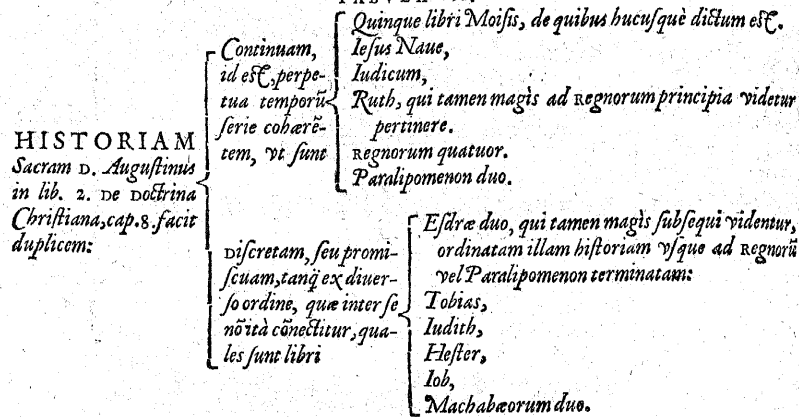 HISTORIAM
Sacram D. Auguſtinus
in lib. 2. De Doctrina
Chriſtiana, cap. 8. facit
duplicem:
Continuam,
id eſt, perpe-
tua temporũ
ſerie cohærẽ-
tem, vt ſunt
Quinque libri Moiſis, de quibus hucuſquè dictum eſt.
Ieſus Naue,
Iudicum,
Ruth, qui tamen magìs ad Regnorum principia videtur
pertinere.
Regnorum quatuor.
Paralipomenon duo.
Diſcretam, ſeu promi-
ſcuam, tanq̃ ex diuer-
ſo ordine, quæ inter ſe
nõ ità cõnectitur, qua-
les ſunt libri
Eſdræ duo, qui tamen magìs ſubſequi videntur,
ordinatam illam hiſtoriam vſque ad Regnorũ
vel Paralipomenon terminatam:
Tobias,
Iudith,
Heſter,
Iob,
Machabæorum duo.